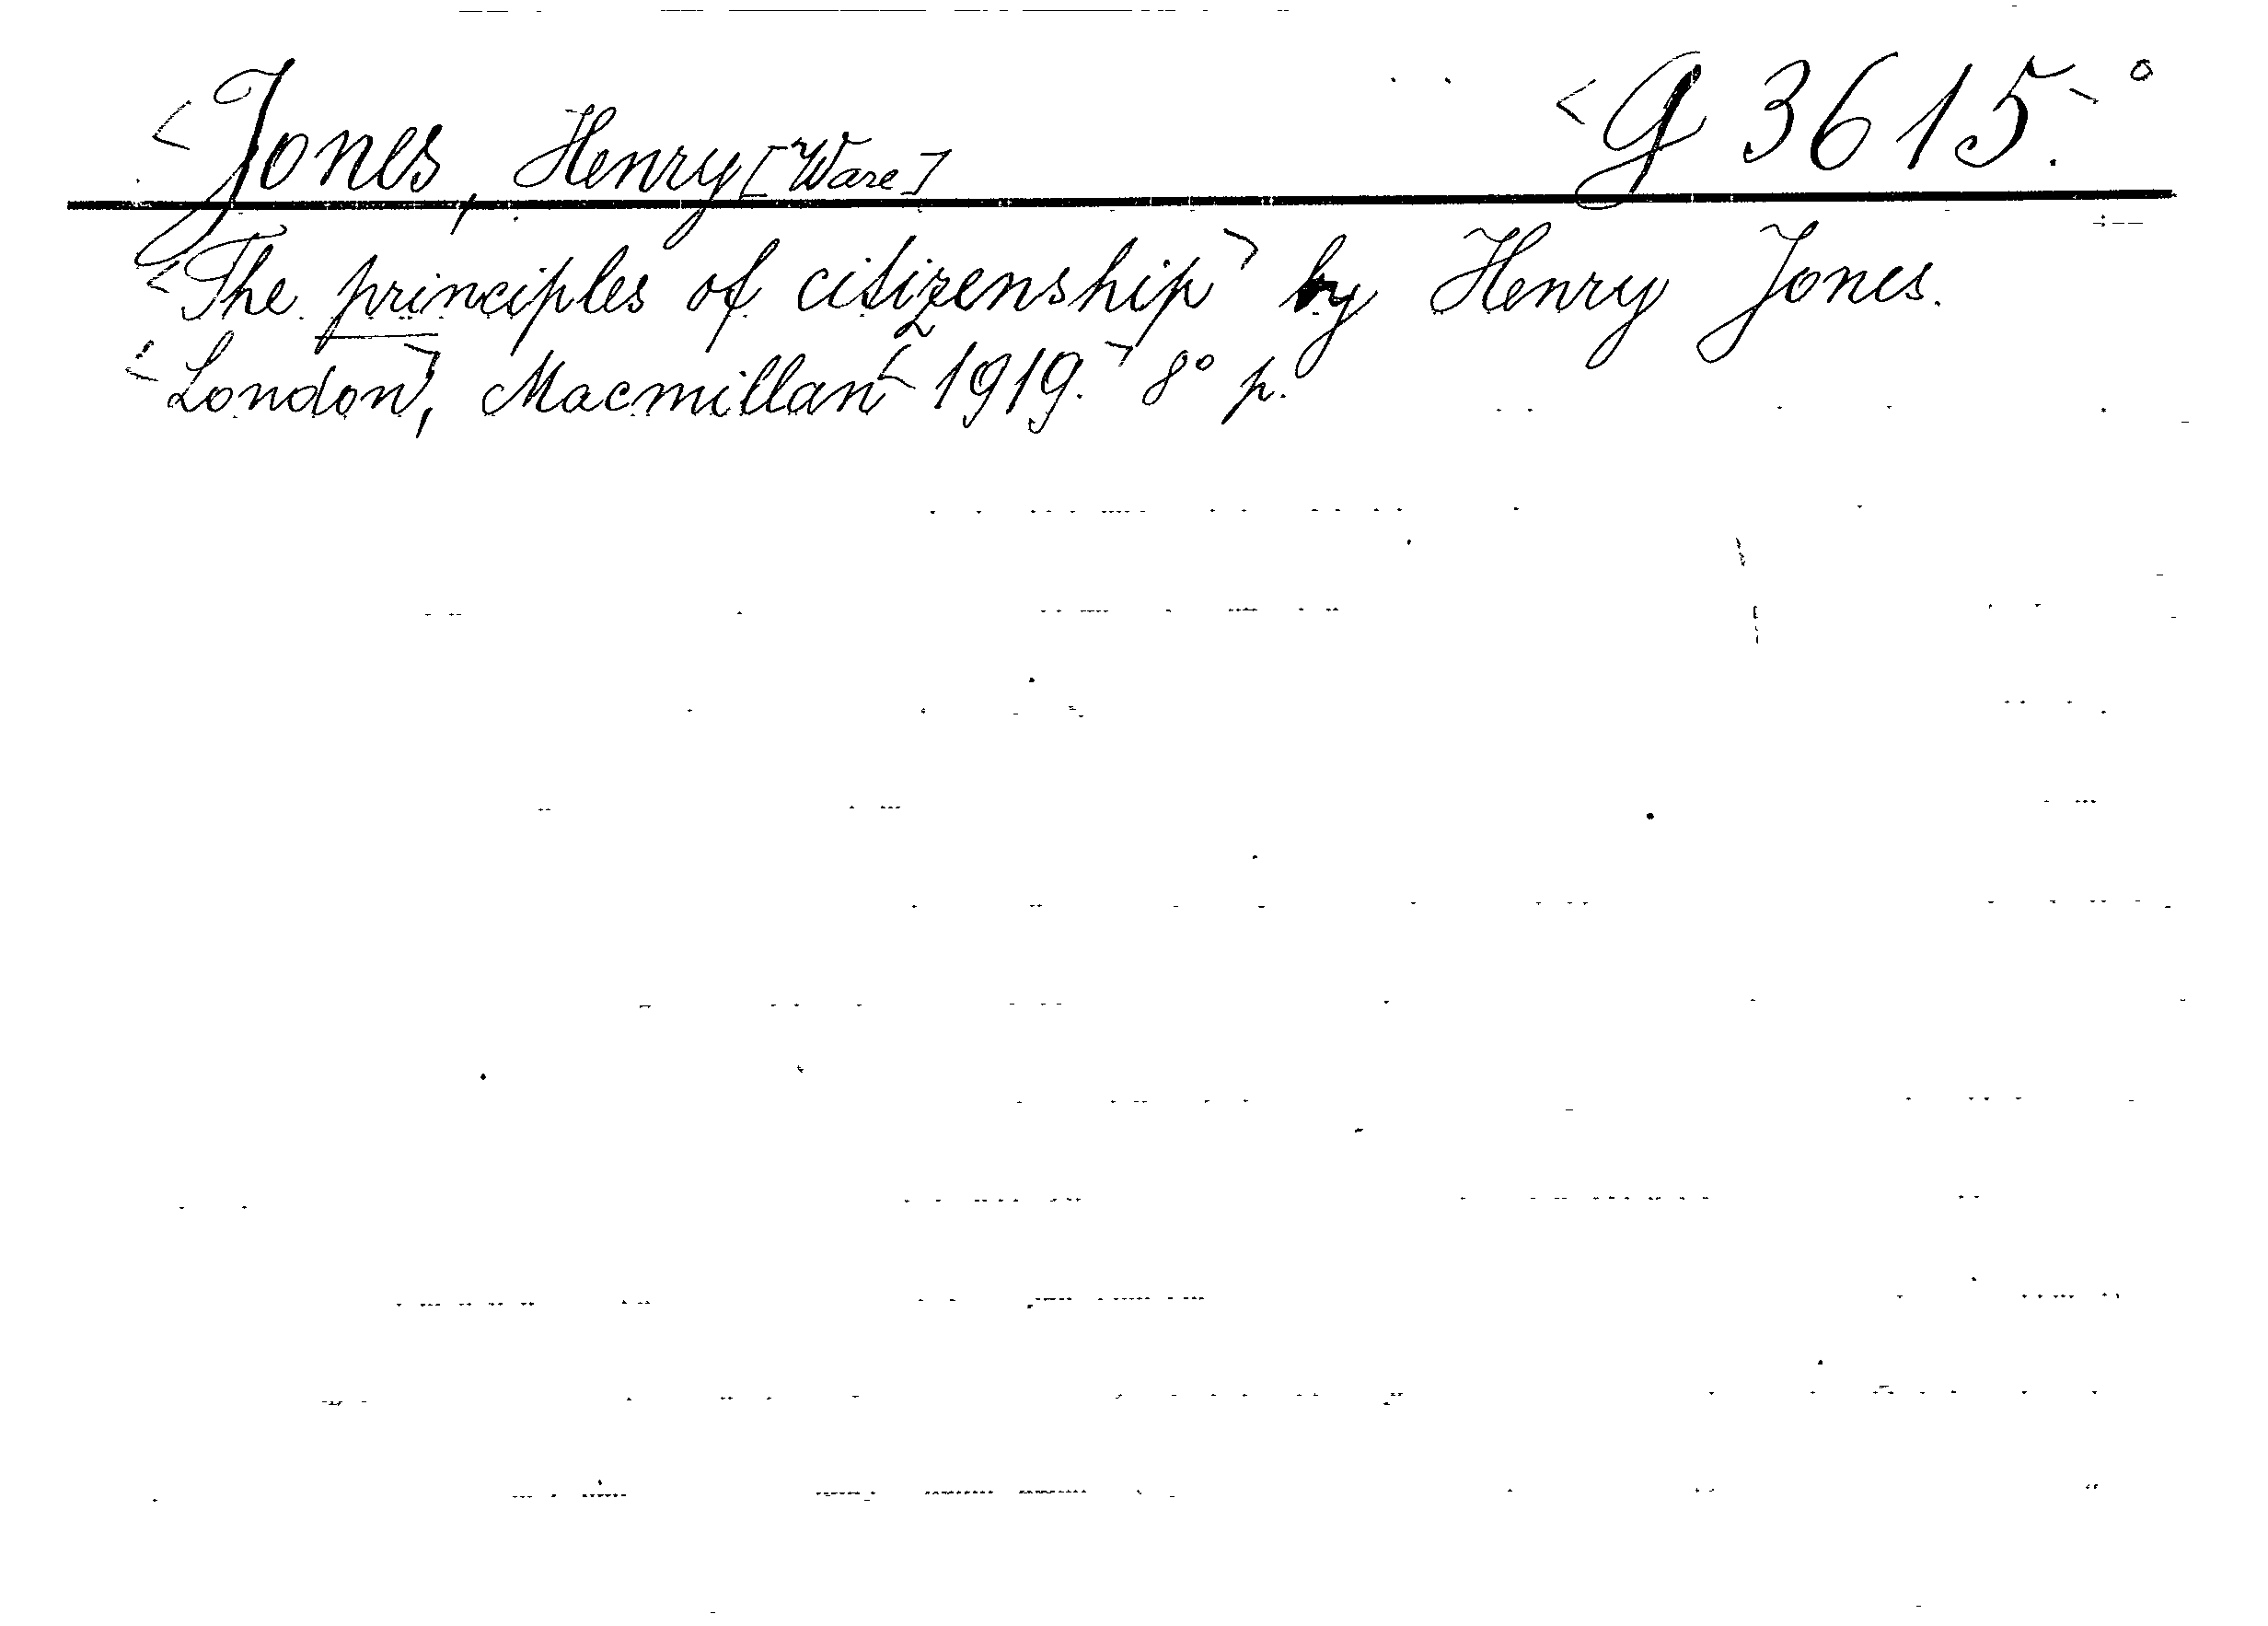 Jones, Henry [Ware] G 3615.
The principles of citizenship by Henry Jones.
London, Macmillan 1919. 8° p.